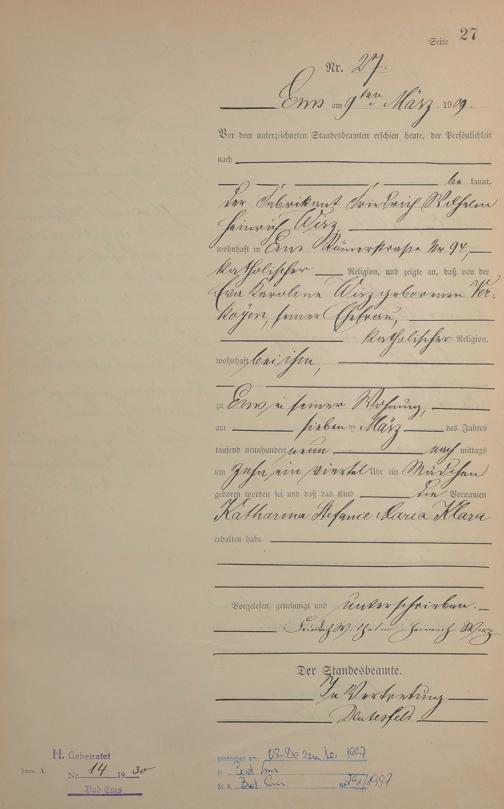 Seite 27
Nr. 27.
Ems am 9ten März 1909.
Vor dem unterzeichneten Standesbeamten erschien heute, der Persönlichkeit
nach
be kannt,
der Fabrikant Friedrich Wilhelm
Heinrich Wirz,
wohnhaft in Ems Römerstraße Nr 94,
katholischer Religion, und zeigte an, daß von der
Eva Karoline Wirz geborenen
seiner Ehefrau,
katholischer Religion,
wohnhaft bei ihm,
zu Ems in seiner Wohnung,
am sieben ten März des Jahres
tausend neunhundert neun nach mittags
um zehn ein viertel Uhr ein Mädchen
geboren worden sei und daß das Kind die Vornamen
Katharina Stefanie Maria Klara
erhalten habe.
Vorgelesen, genehmigt und unterschrieben.
Friedrich Wilhelm Heinrich Wirz
Der Standesbeamte.
In Vertretung
H. Geheiratet
Nr 14 1930
Bad Ems
gestorben am: 03. Dezember 1997
in Bad Ems
St. A. Bad Ems Nr. 191/1997